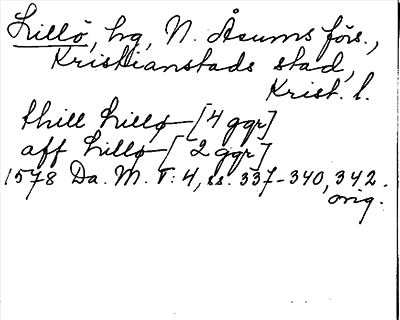 Lillö, hg, N. Åsums förs.,
Kristianstads stad,
Krist. l.
thill Lillø [4 ggr]
aff Lillø [2 ggr]
1578 Da. M. V: 4, ss. 337-340, 342.
orig.